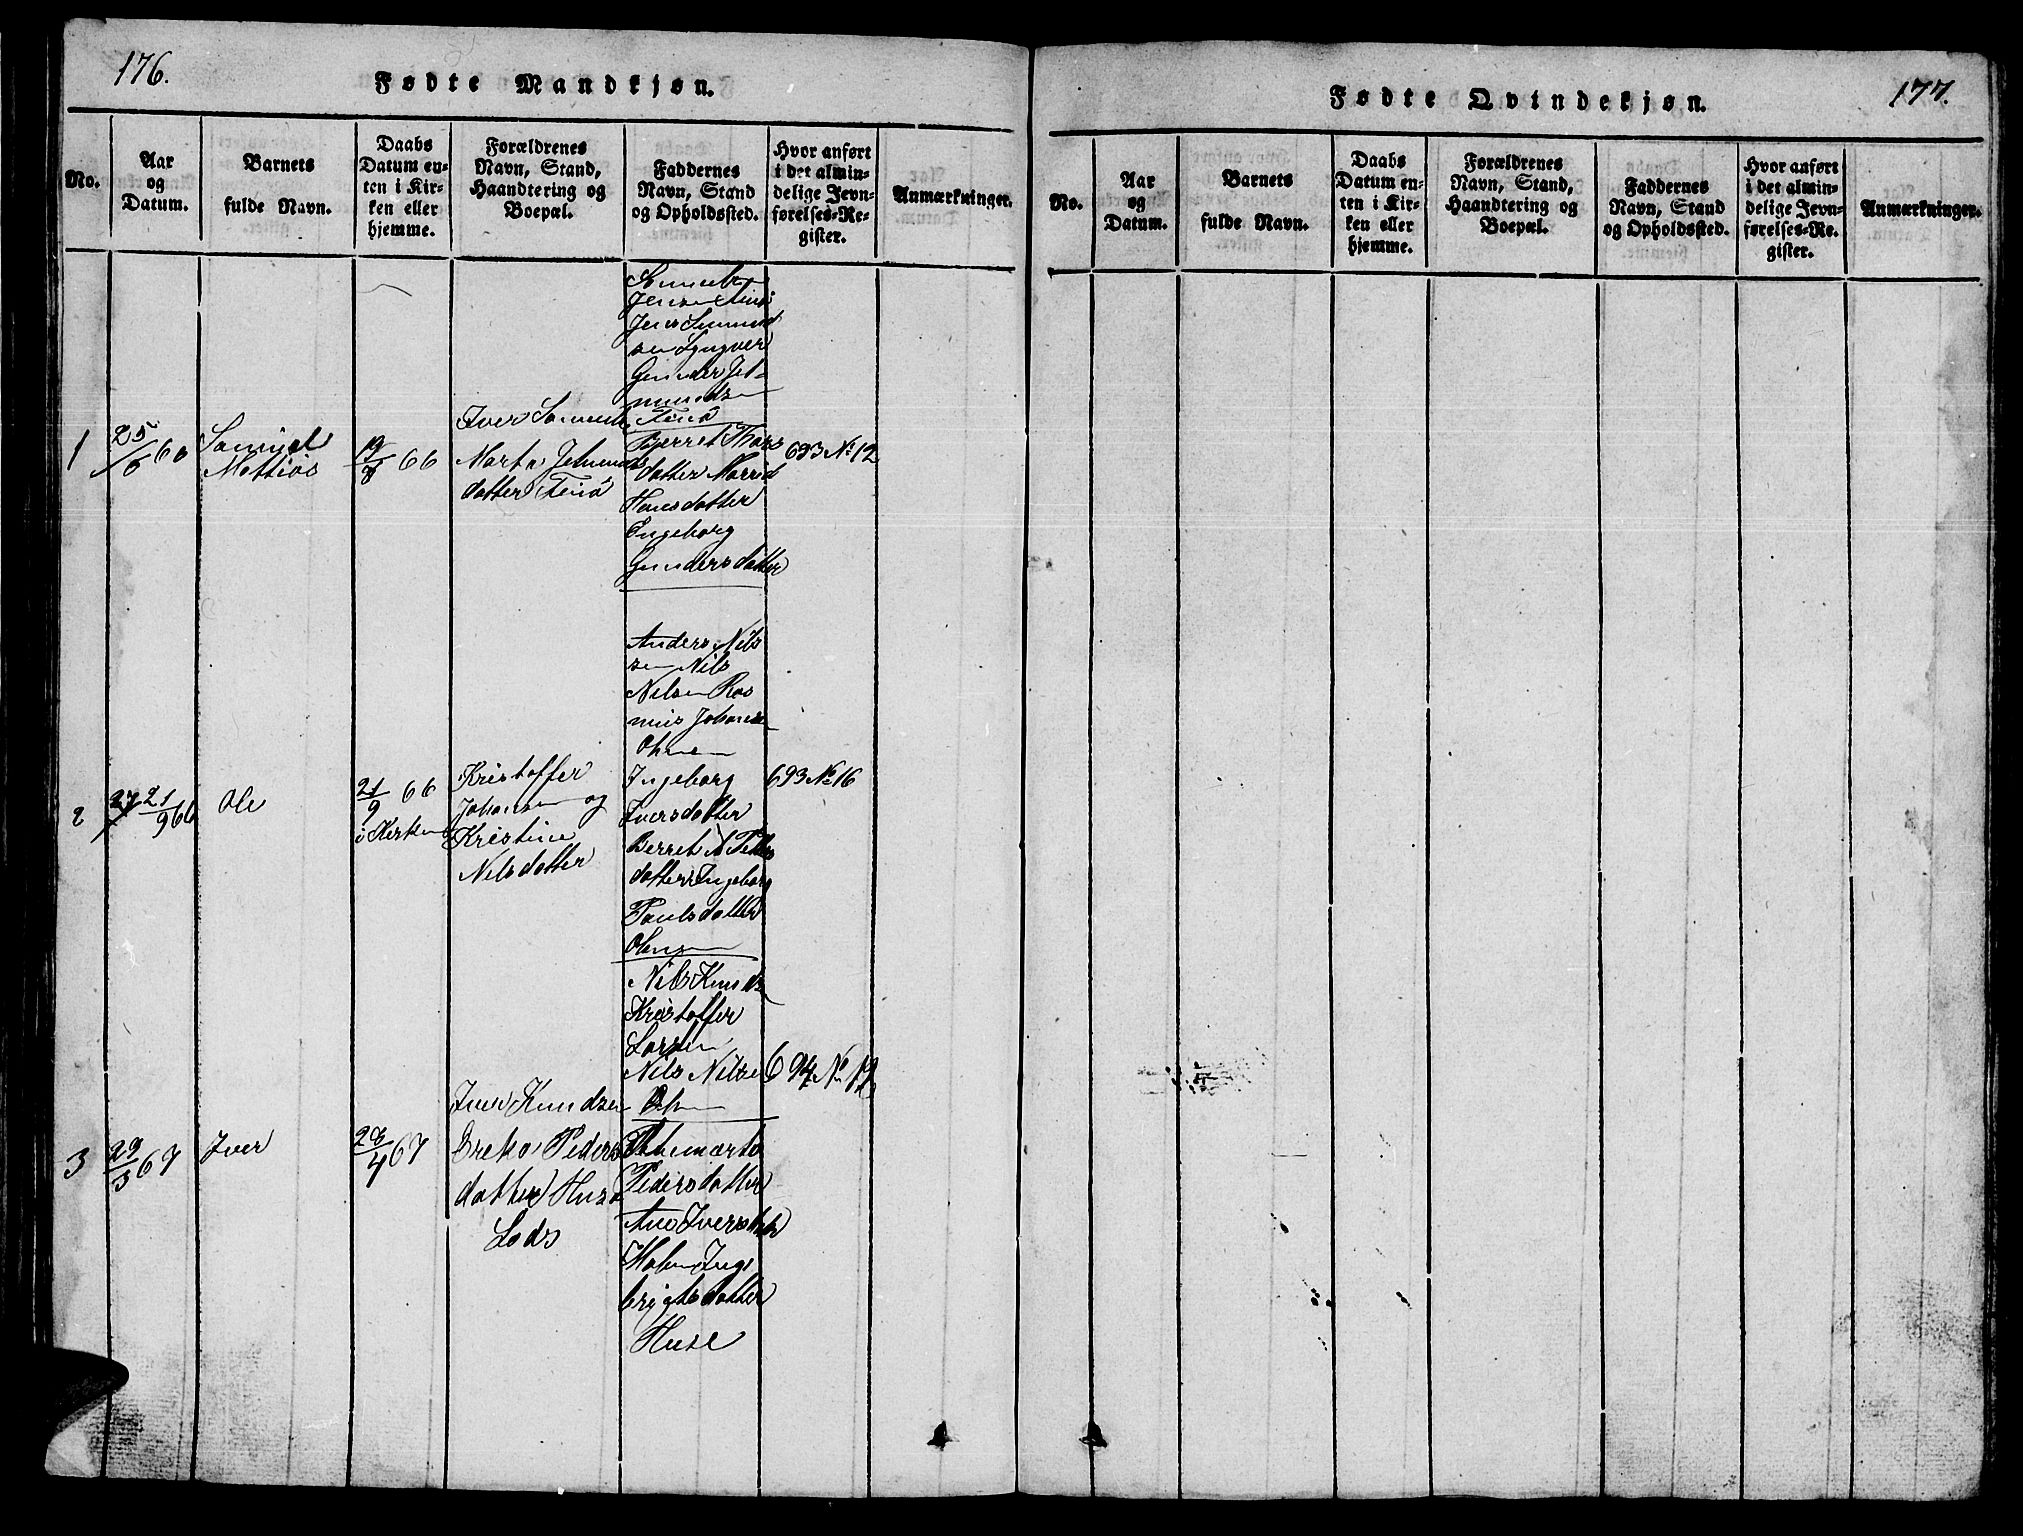 176.
Fødte Mandkjøn.
No.
Aar
og
Datum.
Barnets
fulde Navn.
Daabs
Datum en-
ten i Kir-
ken eller
hjemme.
Forældrenes
Navn, Stand,
Haandtering og
Boepæl.
Faddernes
Navn, Stand
og Opholdssted.
Hvor anført
i det almin-
delige Jevn-
førelses-Re-
gister.
Anmærkninger.
1
25/6 66
Samuel
Mattias
19/8 66
Iver
Marta
datter
Jens
Gunder
Berret
datter Marrid
Hansdatter
Engeborg
Gundersdatter
693 No 12
2
21/9 66
Ole
21/9 66
i Kirken
Kristoffer
Johansen og
Kristine
Nilsdatter
Anders Nils
sen Nils
Nilsen Ras
mus Johansen
Ingeborg
Iversdatter
Berret
datter Ingeborg
Paulsdatter
693 No 16
3
29/3 67
Iver
28/4 67
Iver Knudsen
Peders
datter Huse
Lods
Nils Knuds
Kristoffer
Larsen
Nils Nilsen
Pedersdatter
Iversdatter
Malen Inge
brigtsdatter
Huse
694 No 19
177.
Fødte Qvindekjøn.
No.
Aar
og
Datum.
Barnets
fulde Navn.
Daabs
Datum en-
ten i Kir-
ken eller
hjemme.
Forældrenes
Navn, Stand,
Haandtering og
Boepæl.
Faddernes
Navn, Stand
og Opholdssted.
Hvor anført
i det almin-
delige Jevn-
førelses-Re-
gister.
Anmærkninger.